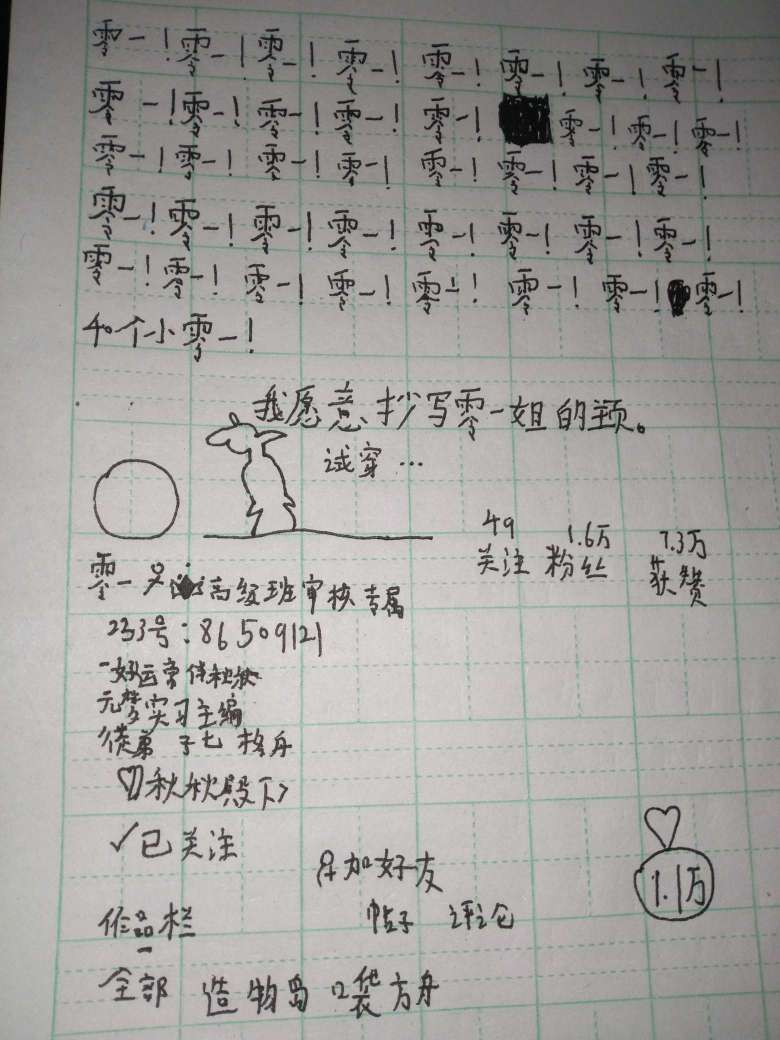 零一！零一！零一！零一！零一！零一！零一！零一！
零一！零一！零一！零一！零一！零一！零一！零一！
零一！零一！零一！零一！零一！零一！零一！零一！
零一！零一！零一！零一！零一！零一！零一！零一！
零一！零一！零一！零一！零一！零一！零一！零一！
40个小零一！
我愿意抄写零一姐的页。
试穿…
49 1.6万 7.3万
关注 粉丝 获赞
零一 高级班审核专属
233号：86509121
好运常伴秋秋
元梦实习主编
徒弟 子七 格舟
♡秋秋殿下
✓已关注
加好友
♡
1.1万
作品栏 帖子 评论
全部 造物岛 口袋方舟